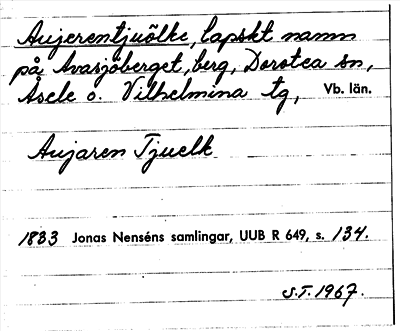 Aujerentjuölke, lapskt namn
på Avasjöberget, berg, Dorotea sn,
Åsele o. Vilhelmina tg, Vb. län.
Aujaren Tjuelk
1833 Jonas Nenséns samlingar, UUB R 649, s. 134.
S.T. 1967.